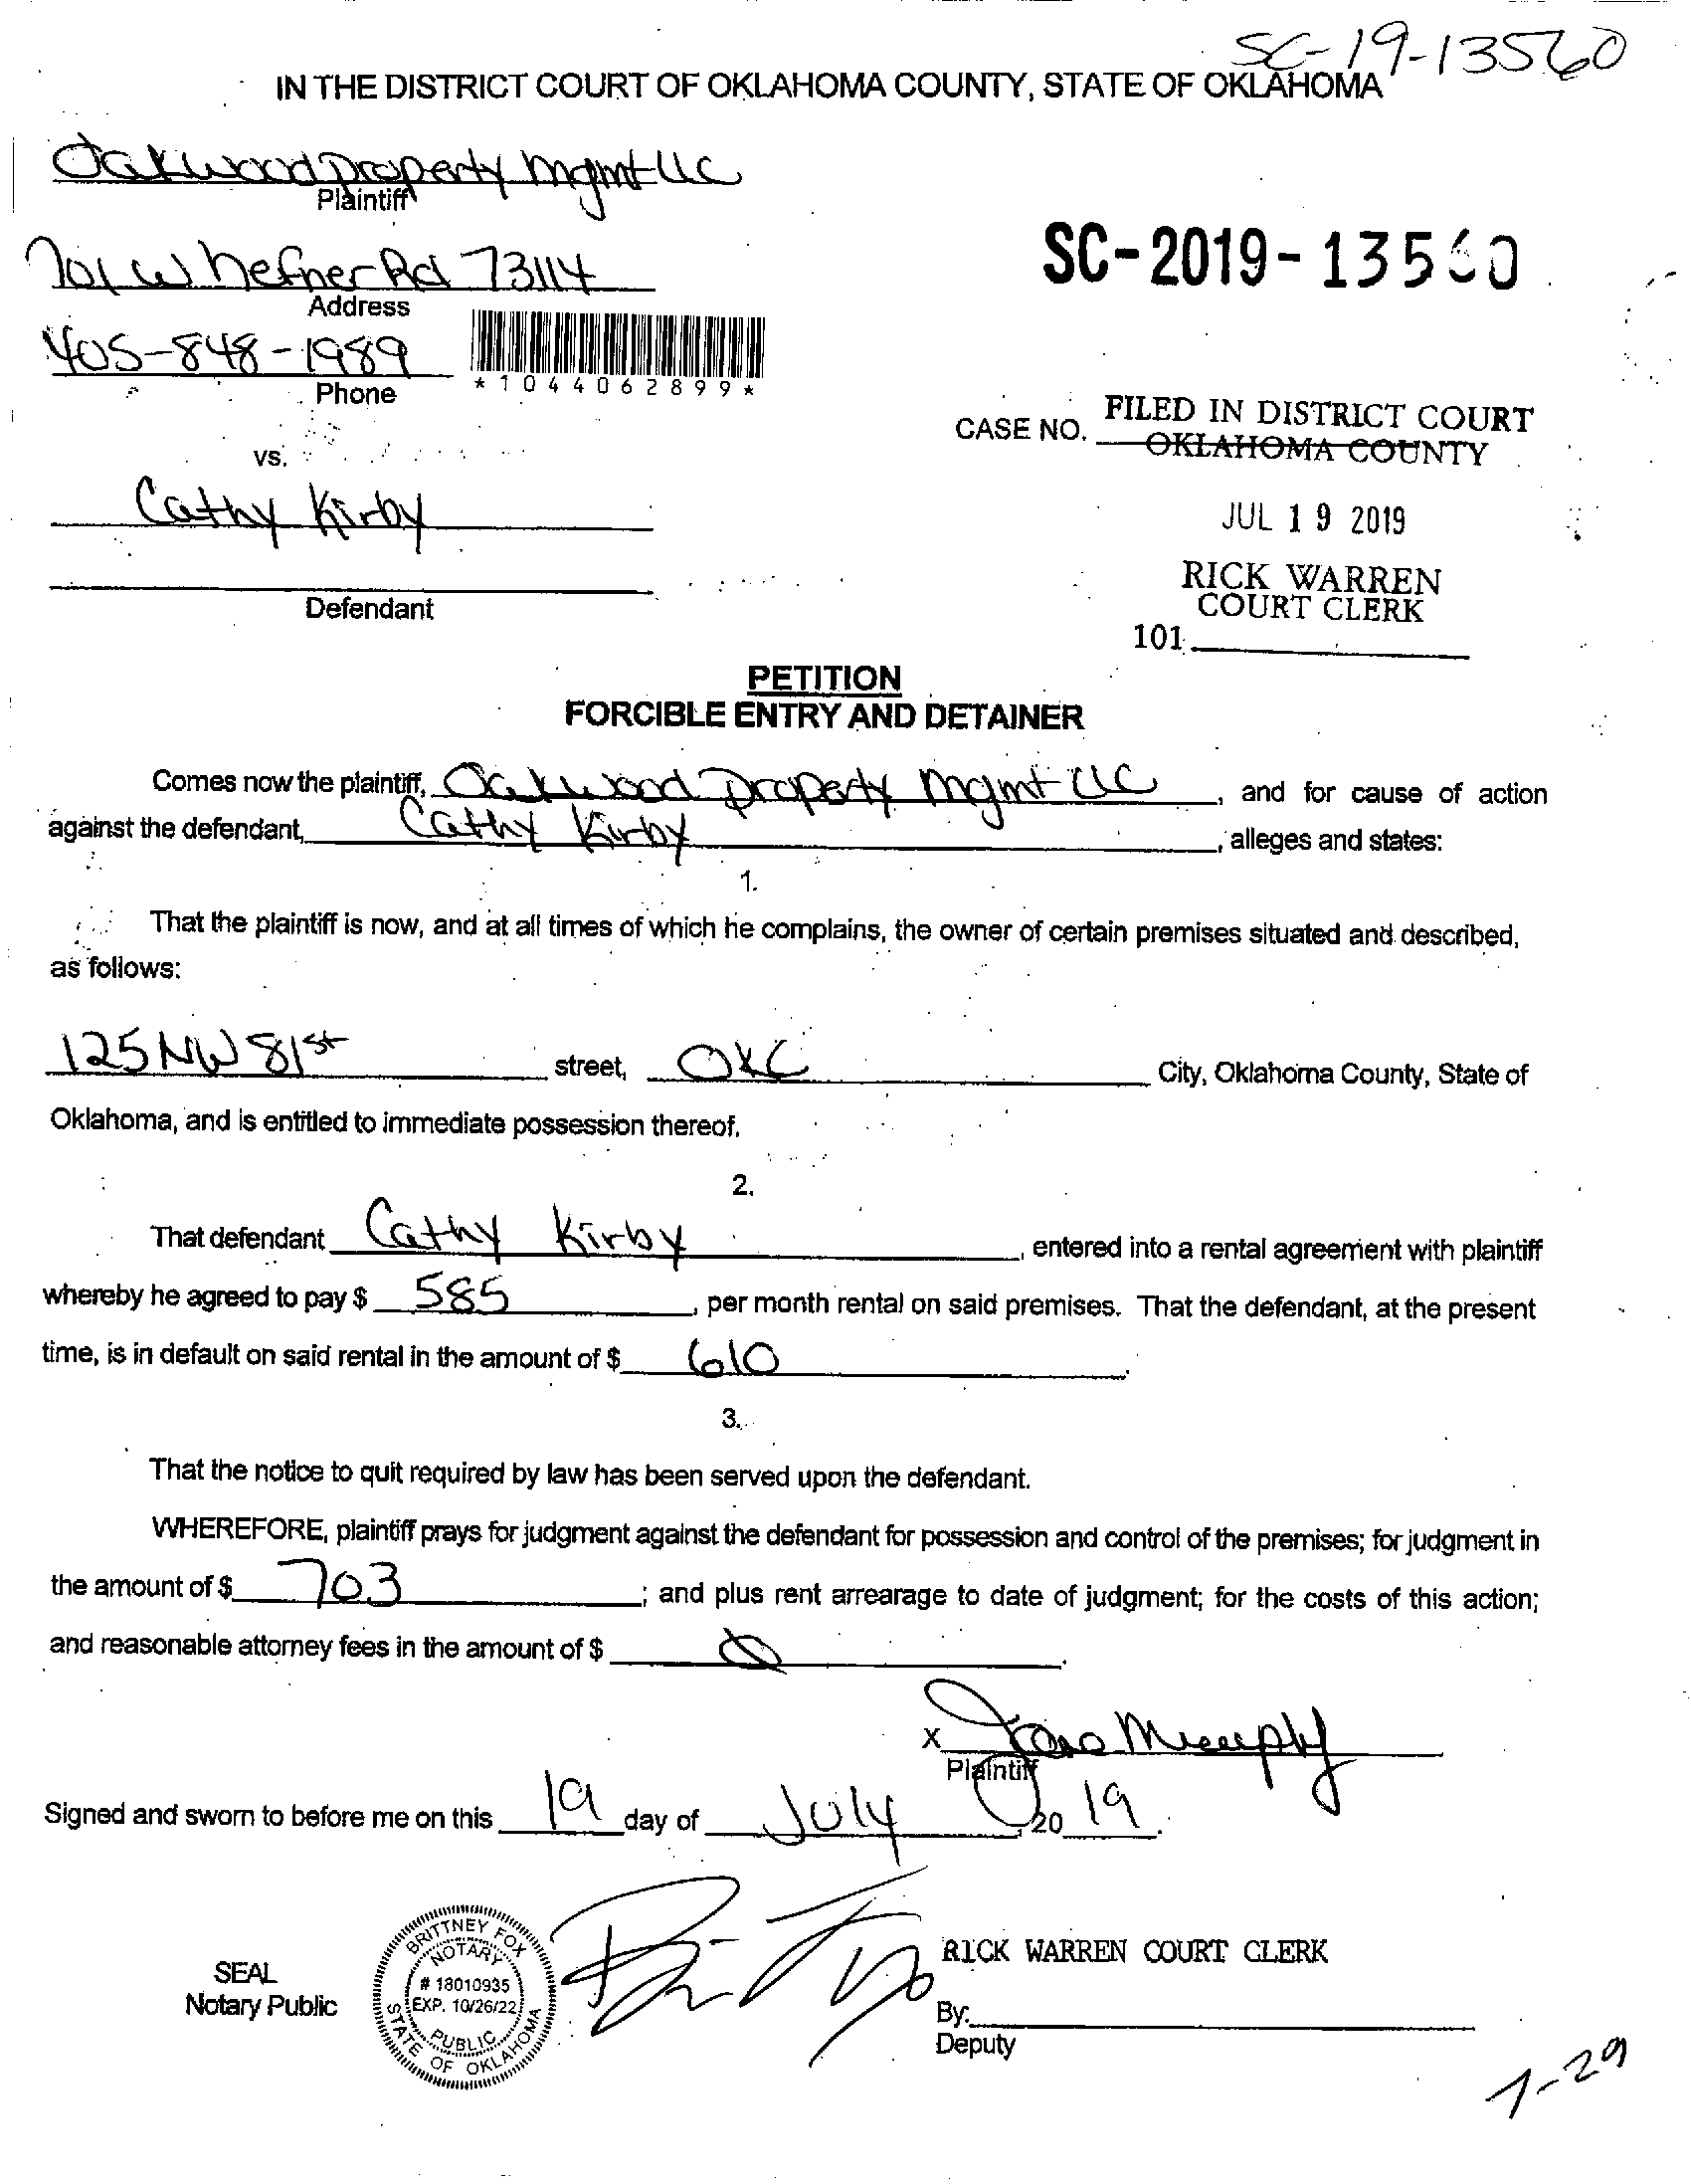 SC-19-13560
IN THE DISTRICT COURT OF OKLAHOMA COUNTY, STATE OF OKLAHOMA
Oakwood Property Mgmt LLC
Plaintiff
701 W Hefner Rd 73114
Address
SC-2019-13560
405-848-1989
Phone
*1044062899*
CASE NO. FILED IN DISTRICT COURT
OKLAHOMA COUNTY
vs.
Cathy Kirby
JUL 19 2019
Defendant
RICK WARREN
COURT CLERK
101
PETITION
FORCIBLE ENTRY AND DETAINER
Comes now the plaintiff, Oakwood Property Mgmt LLC, and for cause of action
against the defendant, Cathy Kirby, alleges and states:
1.
That the plaintiff is now, and at all times of which he complains, the owner of certain premises situated and described,
as follows:
125 NW 81st street, OKC City, Oklahoma County, State of
Oklahoma, and is entitled to immediate possession thereof.
2.
That defendant Cathy Kirby, entered into a rental agreement with plaintiff
whereby he agreed to pay $ 585, per month rental on said premises. That the defendant, at the present
time, is in default on said rental in the amount of $ 610.
3.
That the notice to quit required by law has been served upon the defendant.
WHEREFORE, plaintiff prays for judgment against the defendant for possession and control of the premises; for judgment in
the amount of $ 703; and plus rent arrearage to date of judgment; for the costs of this action;
and reasonable attorney fees in the amount of $ 0.
X Murphy
Plaintiff
Signed and sworn to before me on this 19 day of July, 20 19.
SEAL
Notary Public
BRITTNEY FOX
NOTARY
# 18010935
EXP. 10/26/22
PUBLIC
STATE OF OKLAHOMA
RICK WARREN COURT CLERK
By:
Deputy
7-29